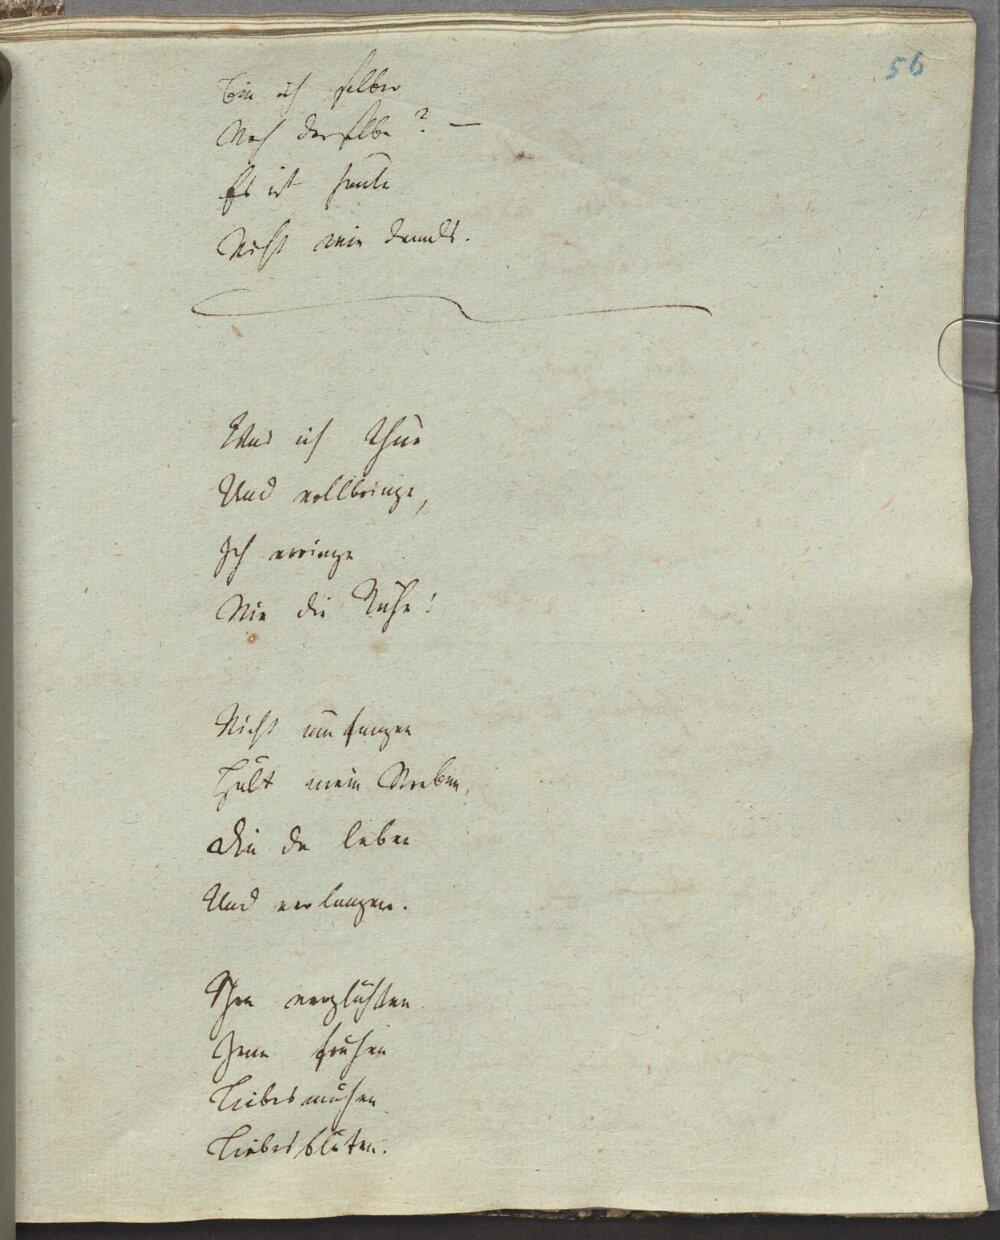 56
Bin ich selber
Noch derselbe? —
Es ist heute
Nicht wie damals.
Was ich thue
Und vollbringe,
Ich erringe
Nie die Ruhe!
Nicht umfangen
Hält mein Streben,
Die da leben
Und verlangen.
Schon verglühten
Jene frühen
Liebesmühen
Liebesblüten.